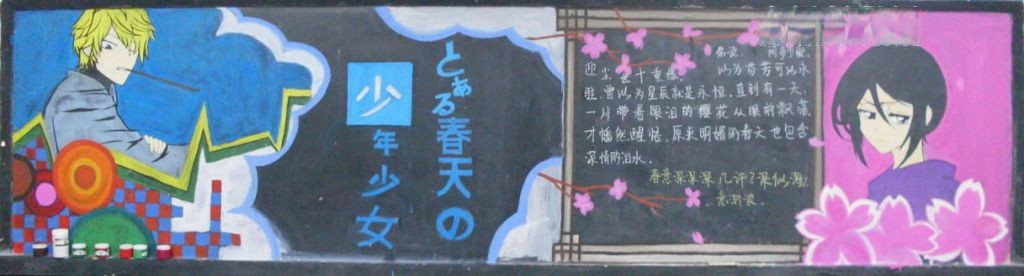 とある春天の
少年少女
以为芬芳可以永
驻,曾以为星辰就是永恒,直到有一天,
一片带着眼泪的樱花从眼前飘落,
才幡然醒悟,原来明媚的春天也包含
深情的泪水。
春意深深深几许?深似海!
意渐浓。